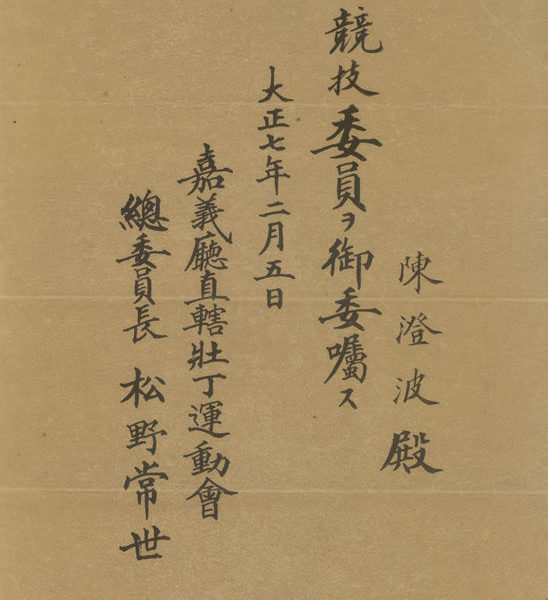 陳澄波殿
競技委員ヲ御委囑ス
大正七年二月五日
嘉義廳直轄壯丁運動會
總委員長 松野常世